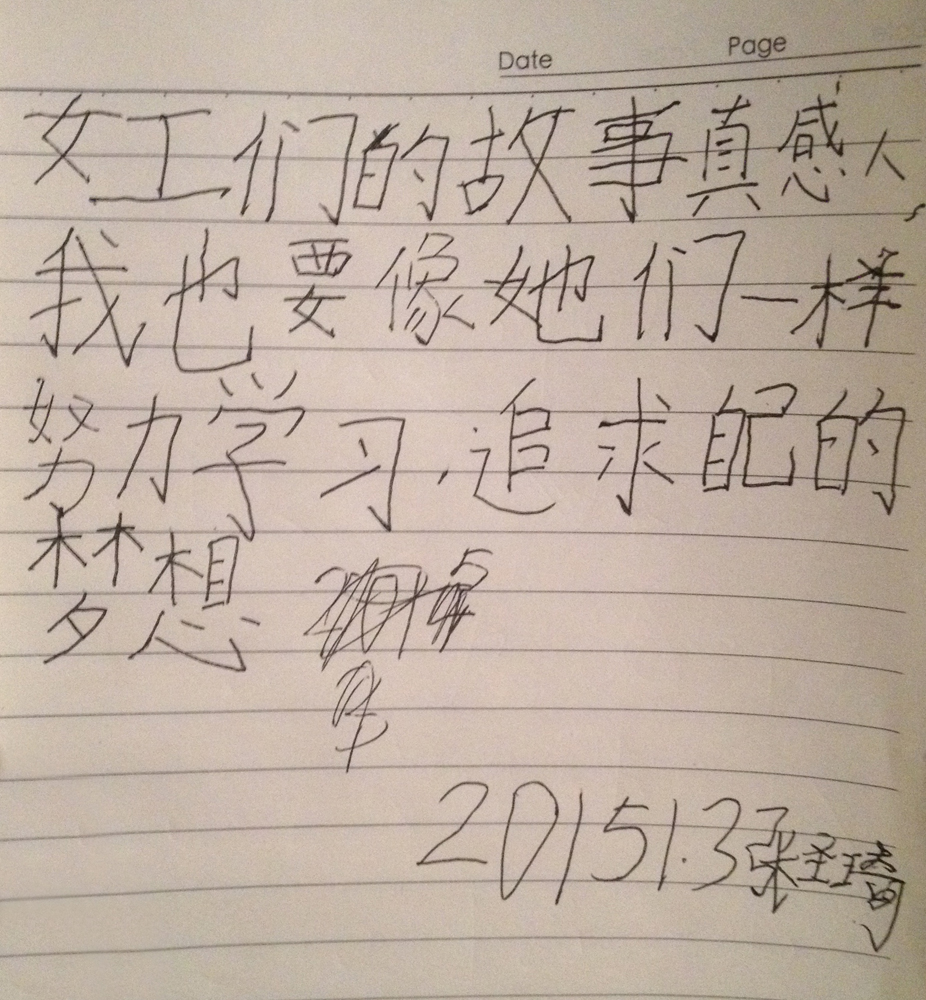 Date Page
女工们的故事真感人,
我也要像她们一样
努力学习.追求自己的
梦想
20151.3张圣琦